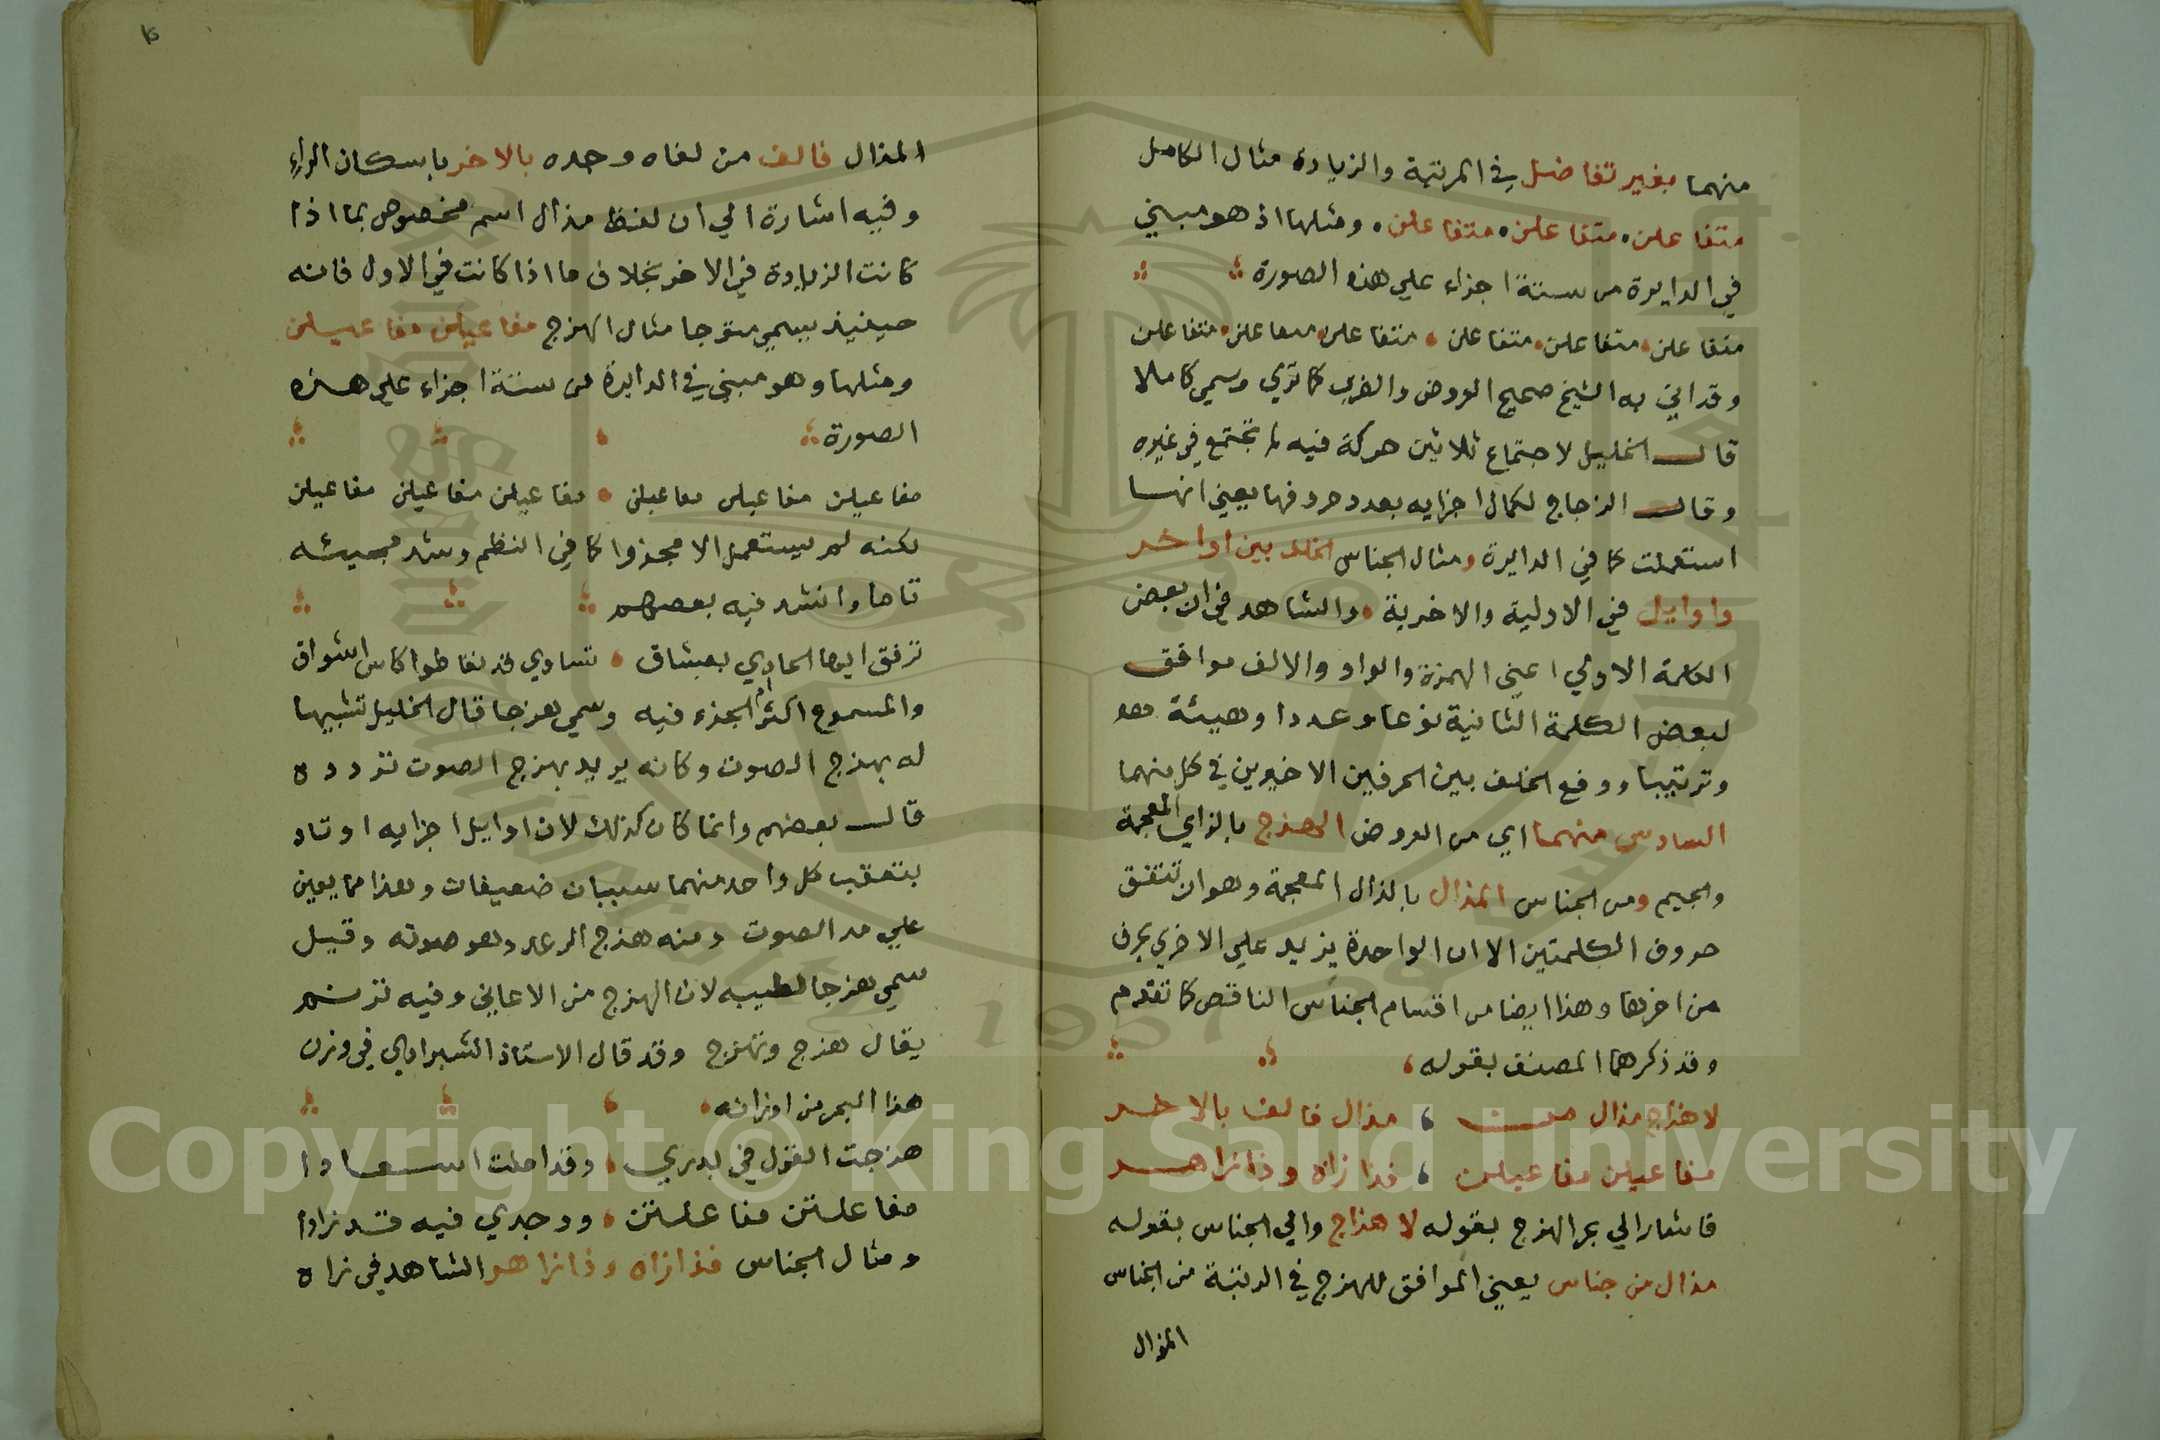 منهما بغير تفاضل في المرتبة والزيادة مثال الكامل
متفاعلن. متفاعلن. متفاعلن. ومثلها اذ هو مبني
في الدايرة من ستة اجزاء علي هذه الصورة
متفاعلن متفاعلن متفاعلن متفاعلن متفاعلن متفاعلن
وقد اتي به الشيخ صحيح العروض والضرب كما تري وسمي كاملا
قال الخليل لاجتماع ثلاثين حركة فيه لم تجتمع في غيره
وقال الزجاج لكمال اجزايه بعدد حروفها يعني انها
استعملت كما في الدايرة ومثال الجناس الخلف بين اواخر
واوايل في الاولية والاخرية والشاهد في ان بعض
الكلمة الاولي اعني الهمزة والواو والالف موافق
لبعض الكلمة الثانية نوعا وعددا وهيئة
وترتيبا ووقع الخلف بين الحرفين الاخيرين في كل منهما
السادس منهما اي من العروض الهزج بالزاي المعجمة
والجيم ومن الجناس المذال بالذال المعجمة وهو ان تتفق
حروف الكلمتين الا ان الواحدة يزيد علي الاخري بحرف
من اخرها وهذا ايضا من اقسام الجناس الناقص كما تقدم
وقد ذكرهما المصنف بقوله
لاهزاج مذال من مذال فالف بالاخر
مفاعيلن مفاعيلن فذا زاه وذا زاهر
فاشار الي بحر الهزج بقوله لاهزاج والي الجناس بقوله
مذال من جناس يعني الموافق للهزج في الرتبة من الجناس
المذال
المذال فالف من لفاه وجده بالاخر باسكان الراء
وفيه اشارة الي ان لفظ مذال اسم مخصوص بما اذا
كانت الزيادة في الاخر بخلاف ما اذا كانت في الاول فانه
حينيذ يسمي متوجا مثال الهزج مفاعيلن مفاعيلن
ومثلها وهو مبني في الدايرة من ستة اجزاء علي هذه
الصورة
مفاعيلن مفاعيلن مفاعيلن مفاعيلن مفاعيلن مفاعيلن
لكنه لم يستعمل الا مجزوا كما في النظم وشد مجيئه
تاما وانشد فيه بعضهم
ترفق ايها الحادي بعشاق نشاوي قد تعاطوا كاس اشواق
والمسموع اكثر الجزء فيه وسمي هزجا قال الخليل تشبيها
له بهزج الصوت وكانه يريد بهزج الصوت تردده
قال بعضهم وانما كان كذلك لان اوايل اجزايه اوتاد
يتعقب كل واحد منهما سببان ضعيفان وهذا مما يعين
علي مد الصوت ومنه هزج الرعد وهو صوته وقيل
سمي هزجا لطيبه لان الهزج من الاغاني وفيه ترنم
يقال هزج وتهزج وقد قال الاستاذ الشبراوي في وزن
هذا البحر من اوزانه
هزجت القول في بدري وقد املت اسعادا
مفاعلتن مفاعلتن ووجدي فيه قد زادا
ومثال الجناس فذا زاه وذا زاهر والشاهد في زاه
Copyright © King Saud University
1957